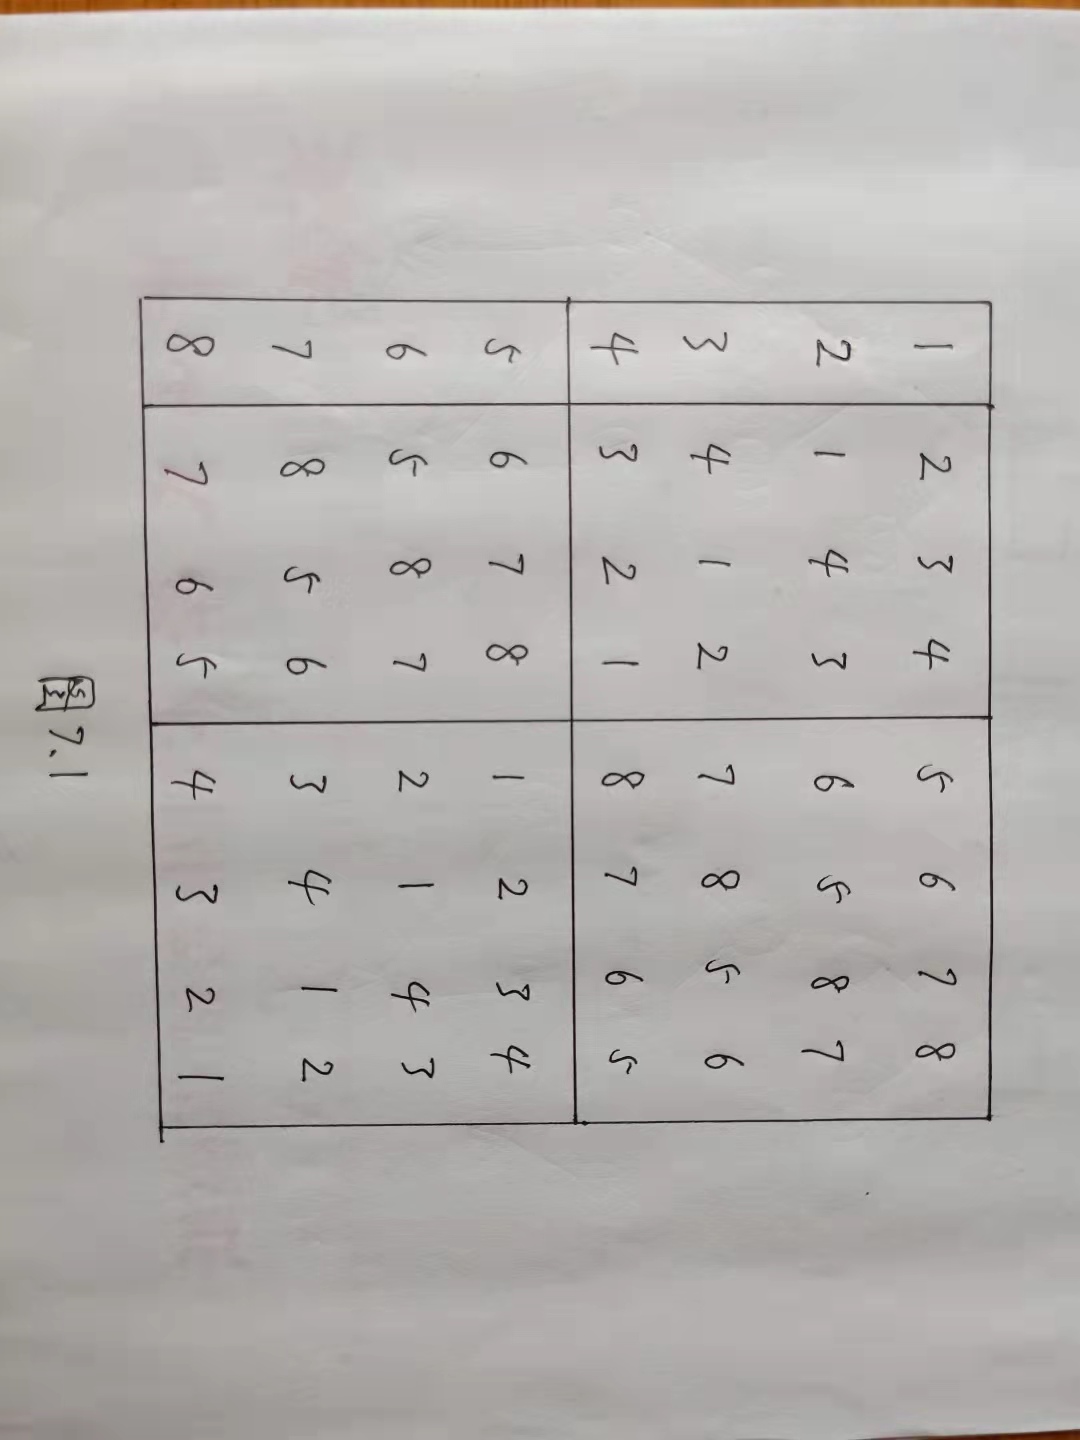 1 2 3 4 5 6 7 8
2 1 4 3 6 5 8 7
3 4 1 2 7 8 5 6
4 3 2 1 8 7 6 5
5 6 7 8 1 2 3 4
6 5 8 7 2 1 4 3
7 8 5 6 3 4 1 2
8 7 6 5 4 3 2 1
图7.1